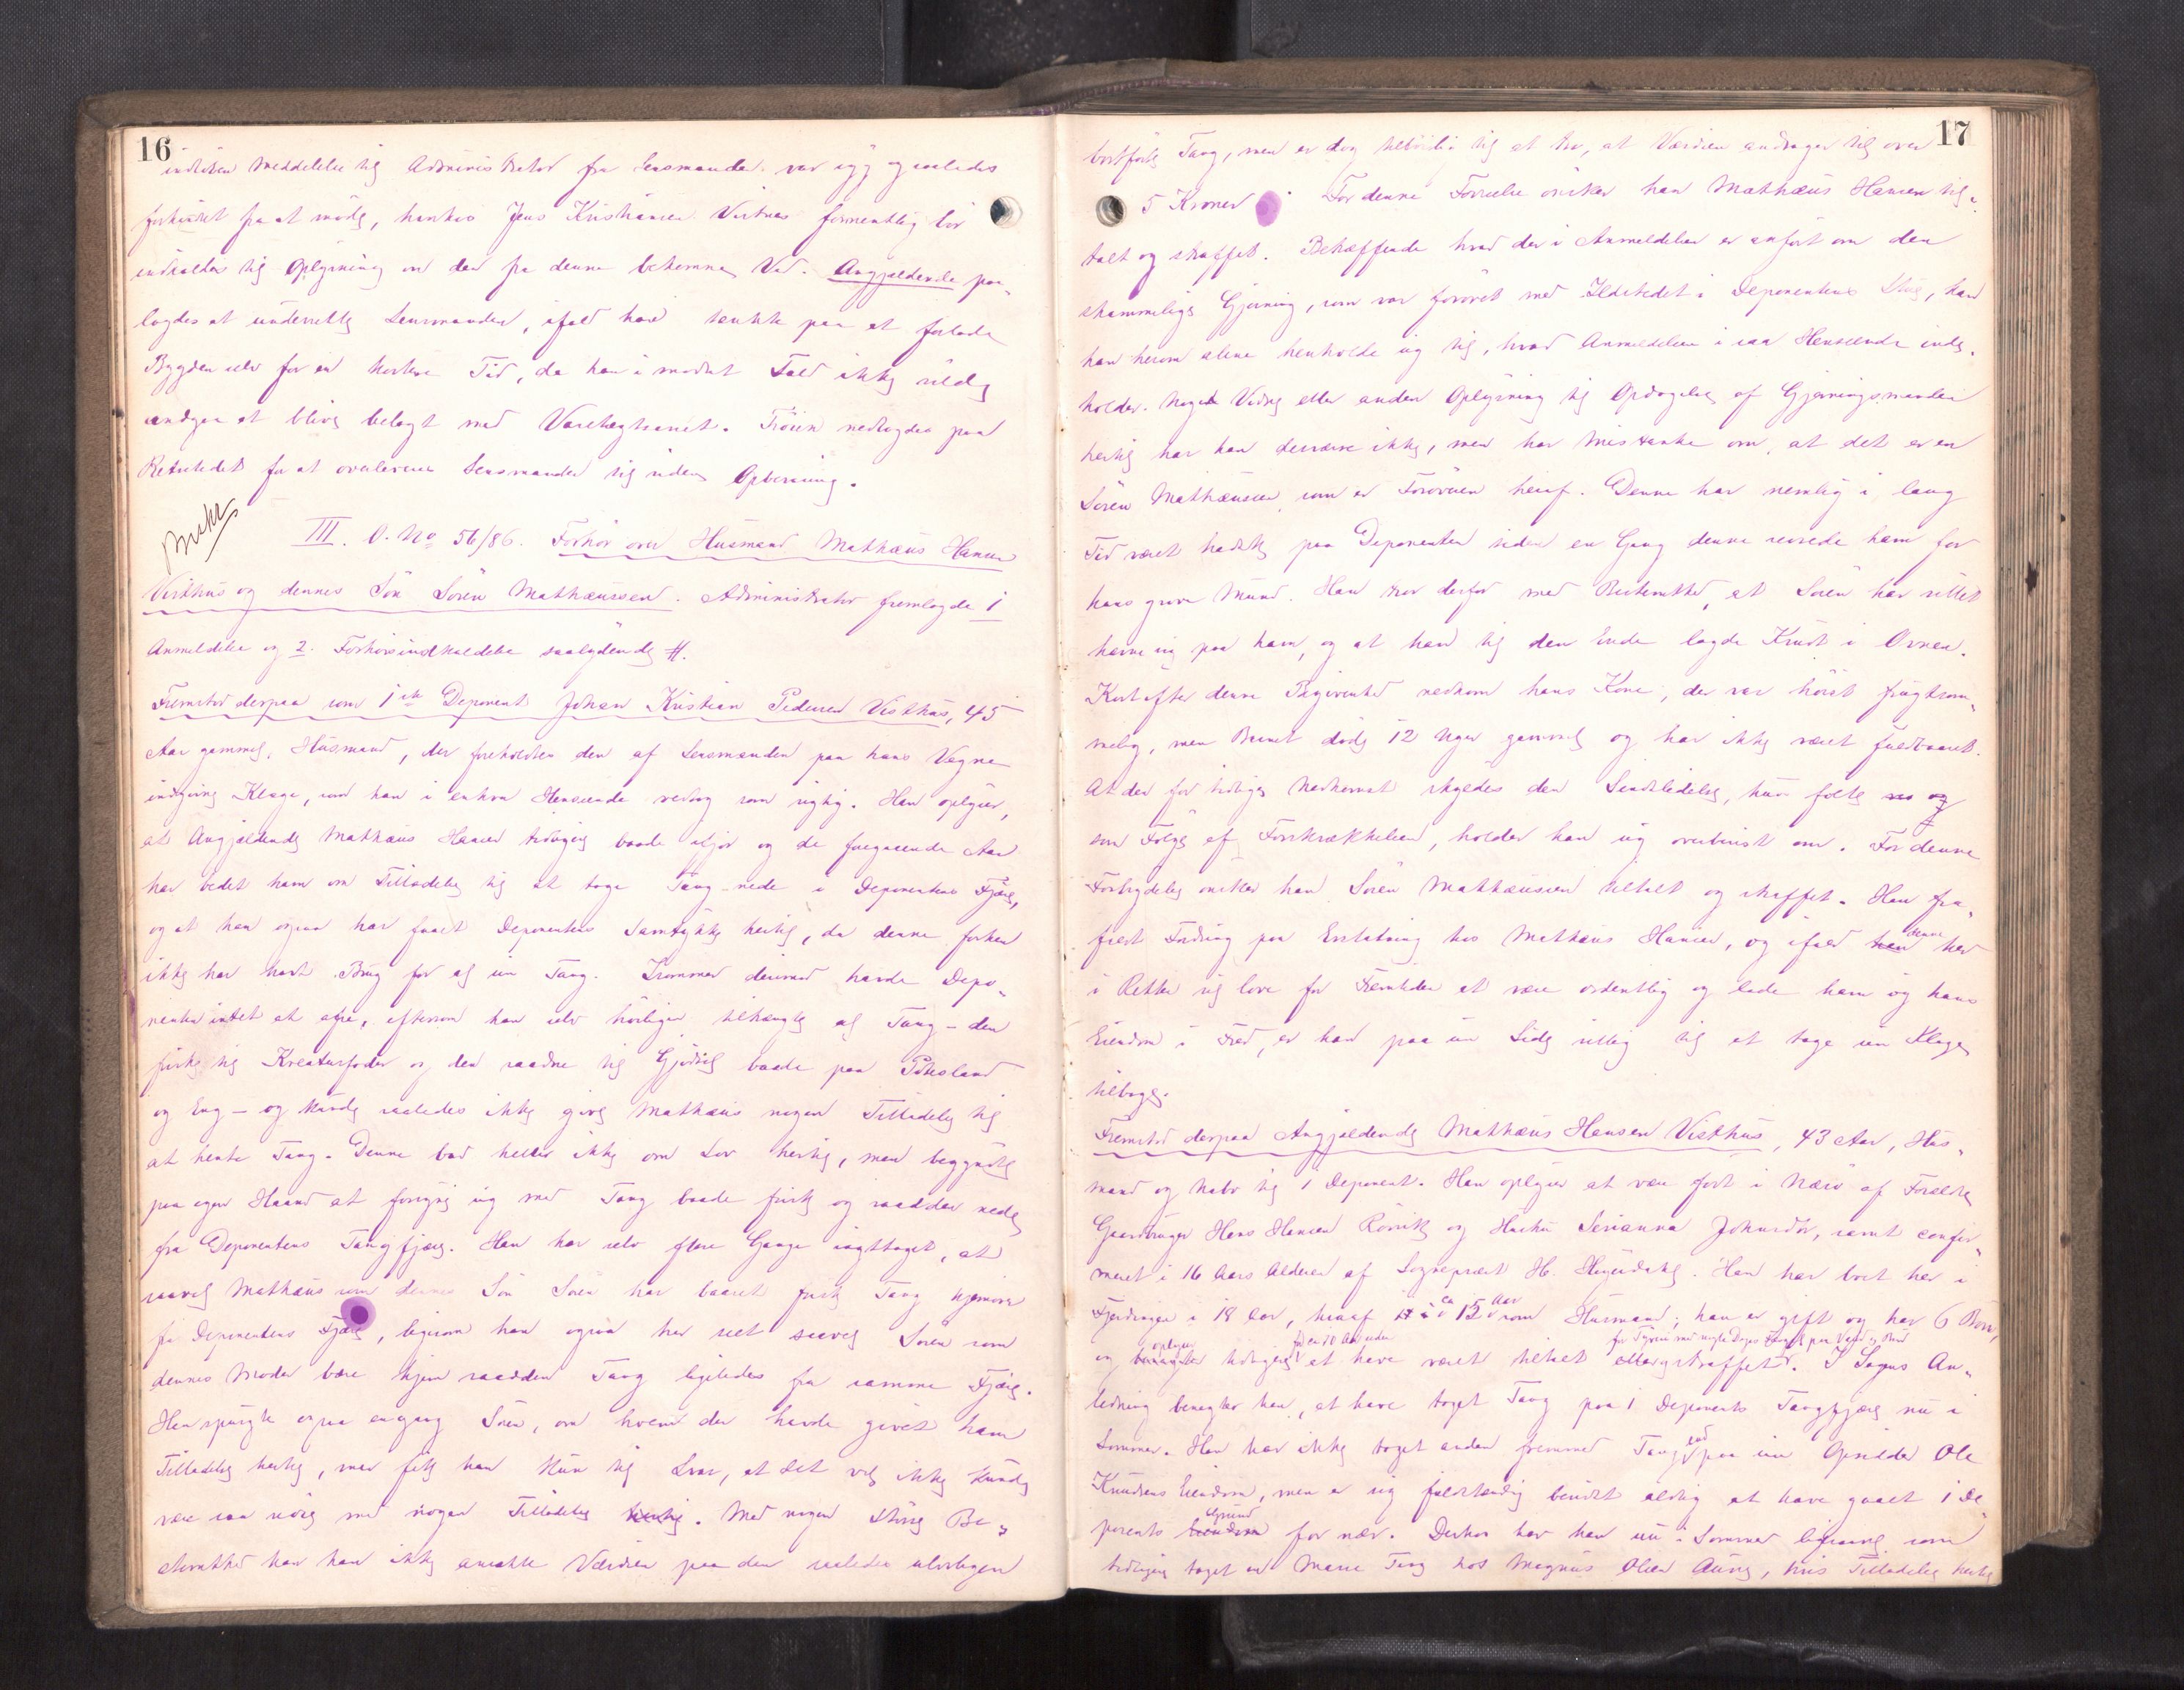 16
indløben Meddelelse til Administrator fra Lensmanden var syg og saaledes
forhindret fra at møde, hvorhos Jens Kristiansen Vistnes formentlig bør
indkaldes til Oplysning om den fra denne bekomne Ved. Angjældende paa„
lagdes at underrette Lensmanden, ifald han tænkte paa at forlade
Bygden selv for en kortere Tid, da han i modsat Fald ikke vilde
undgaa at blive belagt med Varetægtsarrest. Trøien nedlagdes paa
Retstedet for at overleveres Lensmanden til videre Opbevaring.
III. O. No 56/86. Forhør over Husmand Mathæus Hansen
Visthus og dennes Søn Søren Mathæussen. Administrator fremlagde 1
Anmeldelse og 2. Forhørsindkaldelse saalydende #.
Fremstod derpaa som 1ste Deponent Johan Kristian Pedersen Visthus, 45
Aar gammel, Husmand, der foreholdtes den af Lensmanden paa hans Vegne
indgivne Klage, som han i enhver Henseende vedtog som rigtig. Han oplyser,
at Angjældende Mathæus Hansen tidligere baade ifjor og de foregaaende Aar
har bedet ham om Tilladelse til at tage Tang nede i Deponentens Fjære,
og at han ogsaa har faaet Deponentens Samtykke hertil, da denne forhen
ikke har havt Brug for al sin Tang. Isommer derimod havde Depo„
nenten intet at afse, eftersom han selv høiligen tiltrængte al Tang – den
friske til Kreaturfoder og den raadne til Gjødsel baade paa Potetesland
og Eng – og kunde saaledes ikke give Mathæus nogen Tilladelse til
at hente Tang. Denne bad heller ikke om Lov hertil, men begyndte
paa egen Haand at forsyne sig med Tang baade frisk og raadden nede
fra Deponentens Tangfjære. Han har selv flere Gange iagttaget, at
saavel Mathæus som dennes Søn Søren har baaret frisk Tang hjemover
fra Deponentens Fjære, ligesom han ogsaa har seet saavel Søren som
dennes Moder bære hjem raadden Tang ligeledes fra samme Fjære.
Han spurgte ogsaa engang Søren, om hvem der havde givet ham
Tilladelse hertil, men fik han kun til Svar, at det vel ikke kunde
være saa nøie med nogen Tilladelse hertil. Med nogen større Be„
stemthed kan han ikke ansætte Værdien paa den saaledes ulovligen
17
bortførte Tang, men er dog tilbøielig til at tro, at Værdien andrager til over
5 Kroner. For denne Forseelse ønsker han Mathæus Hansen til„
talt og straffet. Betræffende hvad der i Anmeldelsen er anført om den
skammelige Gjerning, som var forøvet med Ildstedet i Deponentens Stue, kan
han herom alene henholde sig til, hvad Anmeldelsen i saa Henseende inde„
holder. Noget Vidne eller anden Oplysning til Opdagelse af Gjerningsmanden
hertil har han desværre ikke, men har Mistanke om, at det er en
Søren Mathæussen, som er Forøveren heraf. Denne har nemlig i lang
Tid været hadsk paa Deponenten siden en Gang denne revsede ham for
hans grove Mund. Han tror derfor med Bestemthed, at Søren har villet
hævne sig paa ham, og at han til den Ende lagde Krudt i Ovnen.
Kort efter denne Begivenhed nedkom hans Kone, der var høist frugtsom„
melig, men Barnet døde 12 Uger gammelt og har ikke været fuldbaaret.
At den for tidlige Nedkomst skyldes den Sindslidelse, hun følte
som Følge af Forskrækkelsen, holder han sig overbevist om. For denne
Forbrydelse ønsker han Søren Mathæussen tiltalt og straffet. Han fra„
falder Fordring paa Erstatning hos Mathæus Hansen, og ifald han denne her
i Retten vil love for Fremtiden at være ordentlig og lade ham og hans
Eiendom i Fred, er han paa sin Side villig til at tage sin Klage
tilbage.
Fremstod derpaa Angjældende Mathæus Hansen Visthus, 43 Aar, Hus„
mand og Nabo til 1 Deponent. Han oplyser at være født i Nærø af Forældre
Gaardbruger Hans Hansen Rørvik og Hustru Serianna Johnsdtr, samt confir„
meret i 16 Aars Alderen af Sogneprest H. . Han har boet her i
Fjerdingen i 18 Aar, heraf ca 15 Aar som Husmand; han er gift og har 6 Børn,
og oplyser tidligere for ca 10 Aar siden at have været tiltalt og straffet for Tyveri med nogle Dages Fængsel paa Vand og Brød. I Sagens An„
ledning benægter han, at have taget Tang paa 1 Deponents Tangfjære nu i
Sommer. Han har ikke taget anden fremmed Tang end paa sin Opsidder Ole
Knudsens Eiendom, men er sig fuldstændig bevidst aldrig at have gaaet 1 De
ponents Eiendom Grund for nær. Derhos har han nu i Sommer ligesaavel som
tidligere taget en Masse Tang hos Magnus Olsen Aune, hvis Tilladelse hertil